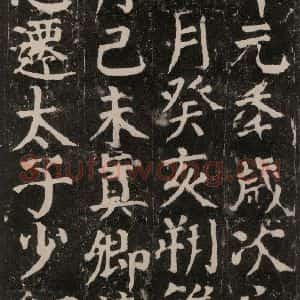 元年歲次
月癸亥朔
己未真卿
遷太子少
Shufawang.cn